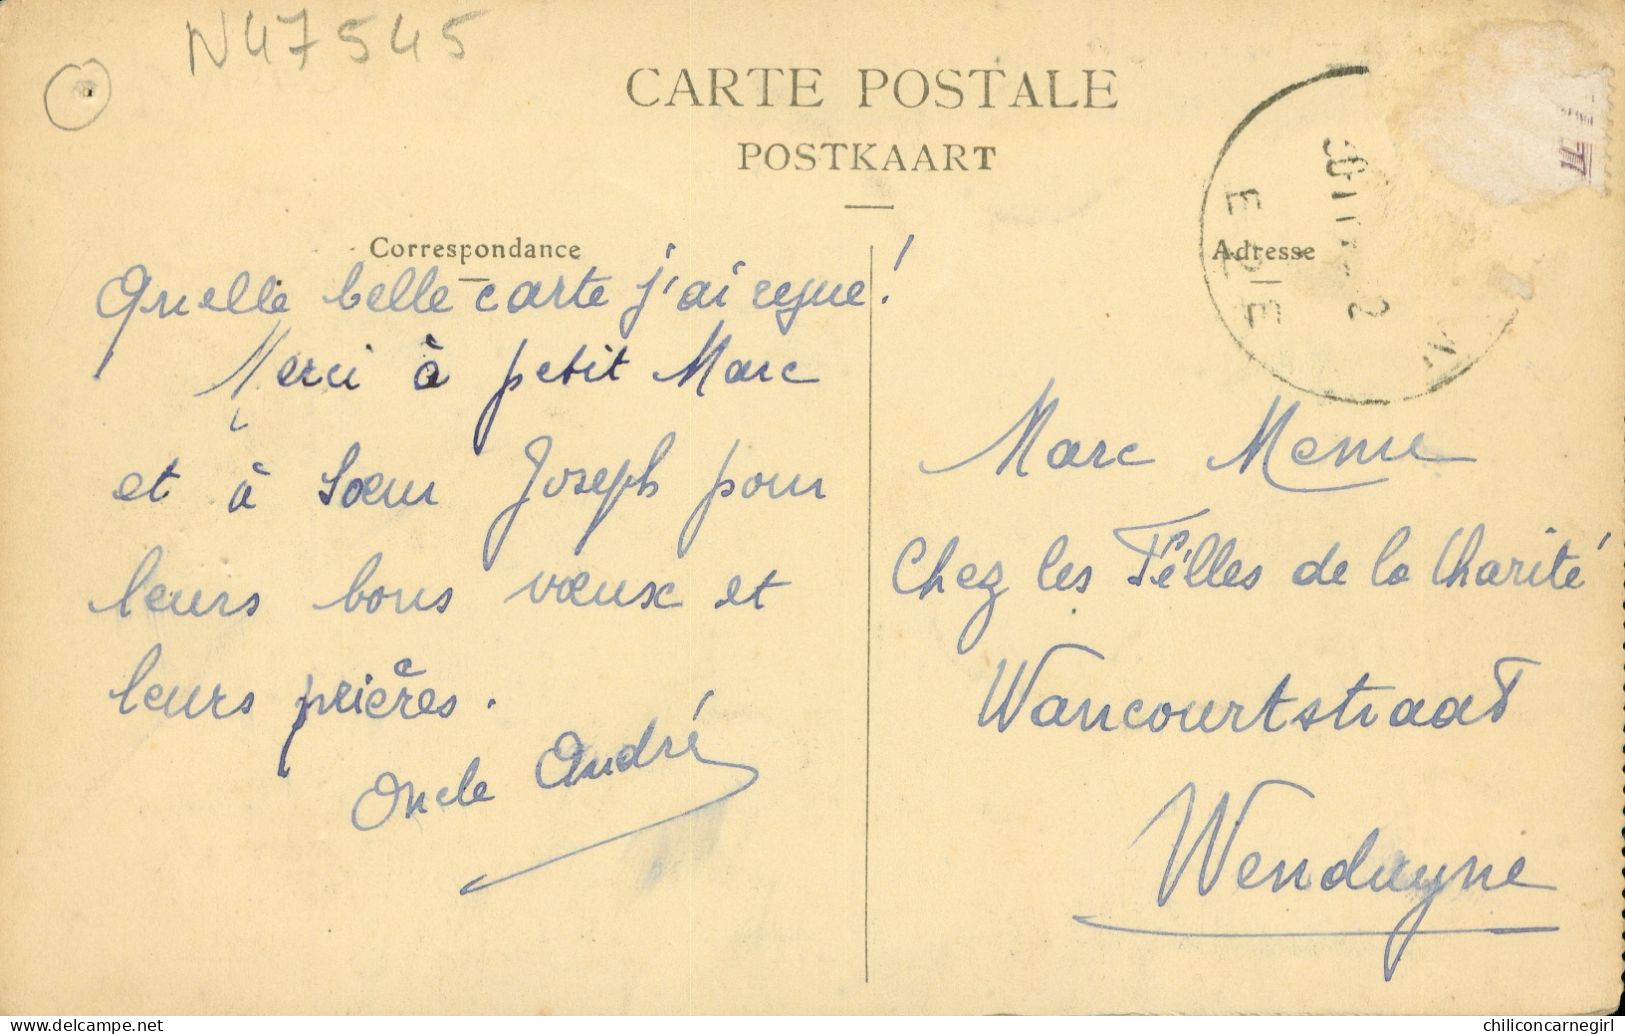 N47545
CARTE POSTALE
POSTKAART
Correspondance
Quelle belle carte j'ai reçue!
Merci à petit Marc
et à Sœur Joseph pour
leurs bons vœux et
leurs prières.
Oncle André
Adresse
Marc
Chez les Filles de la Charité
Wancourtstraat
Wenduyne
delcampe.net
chiliconcarnegirl